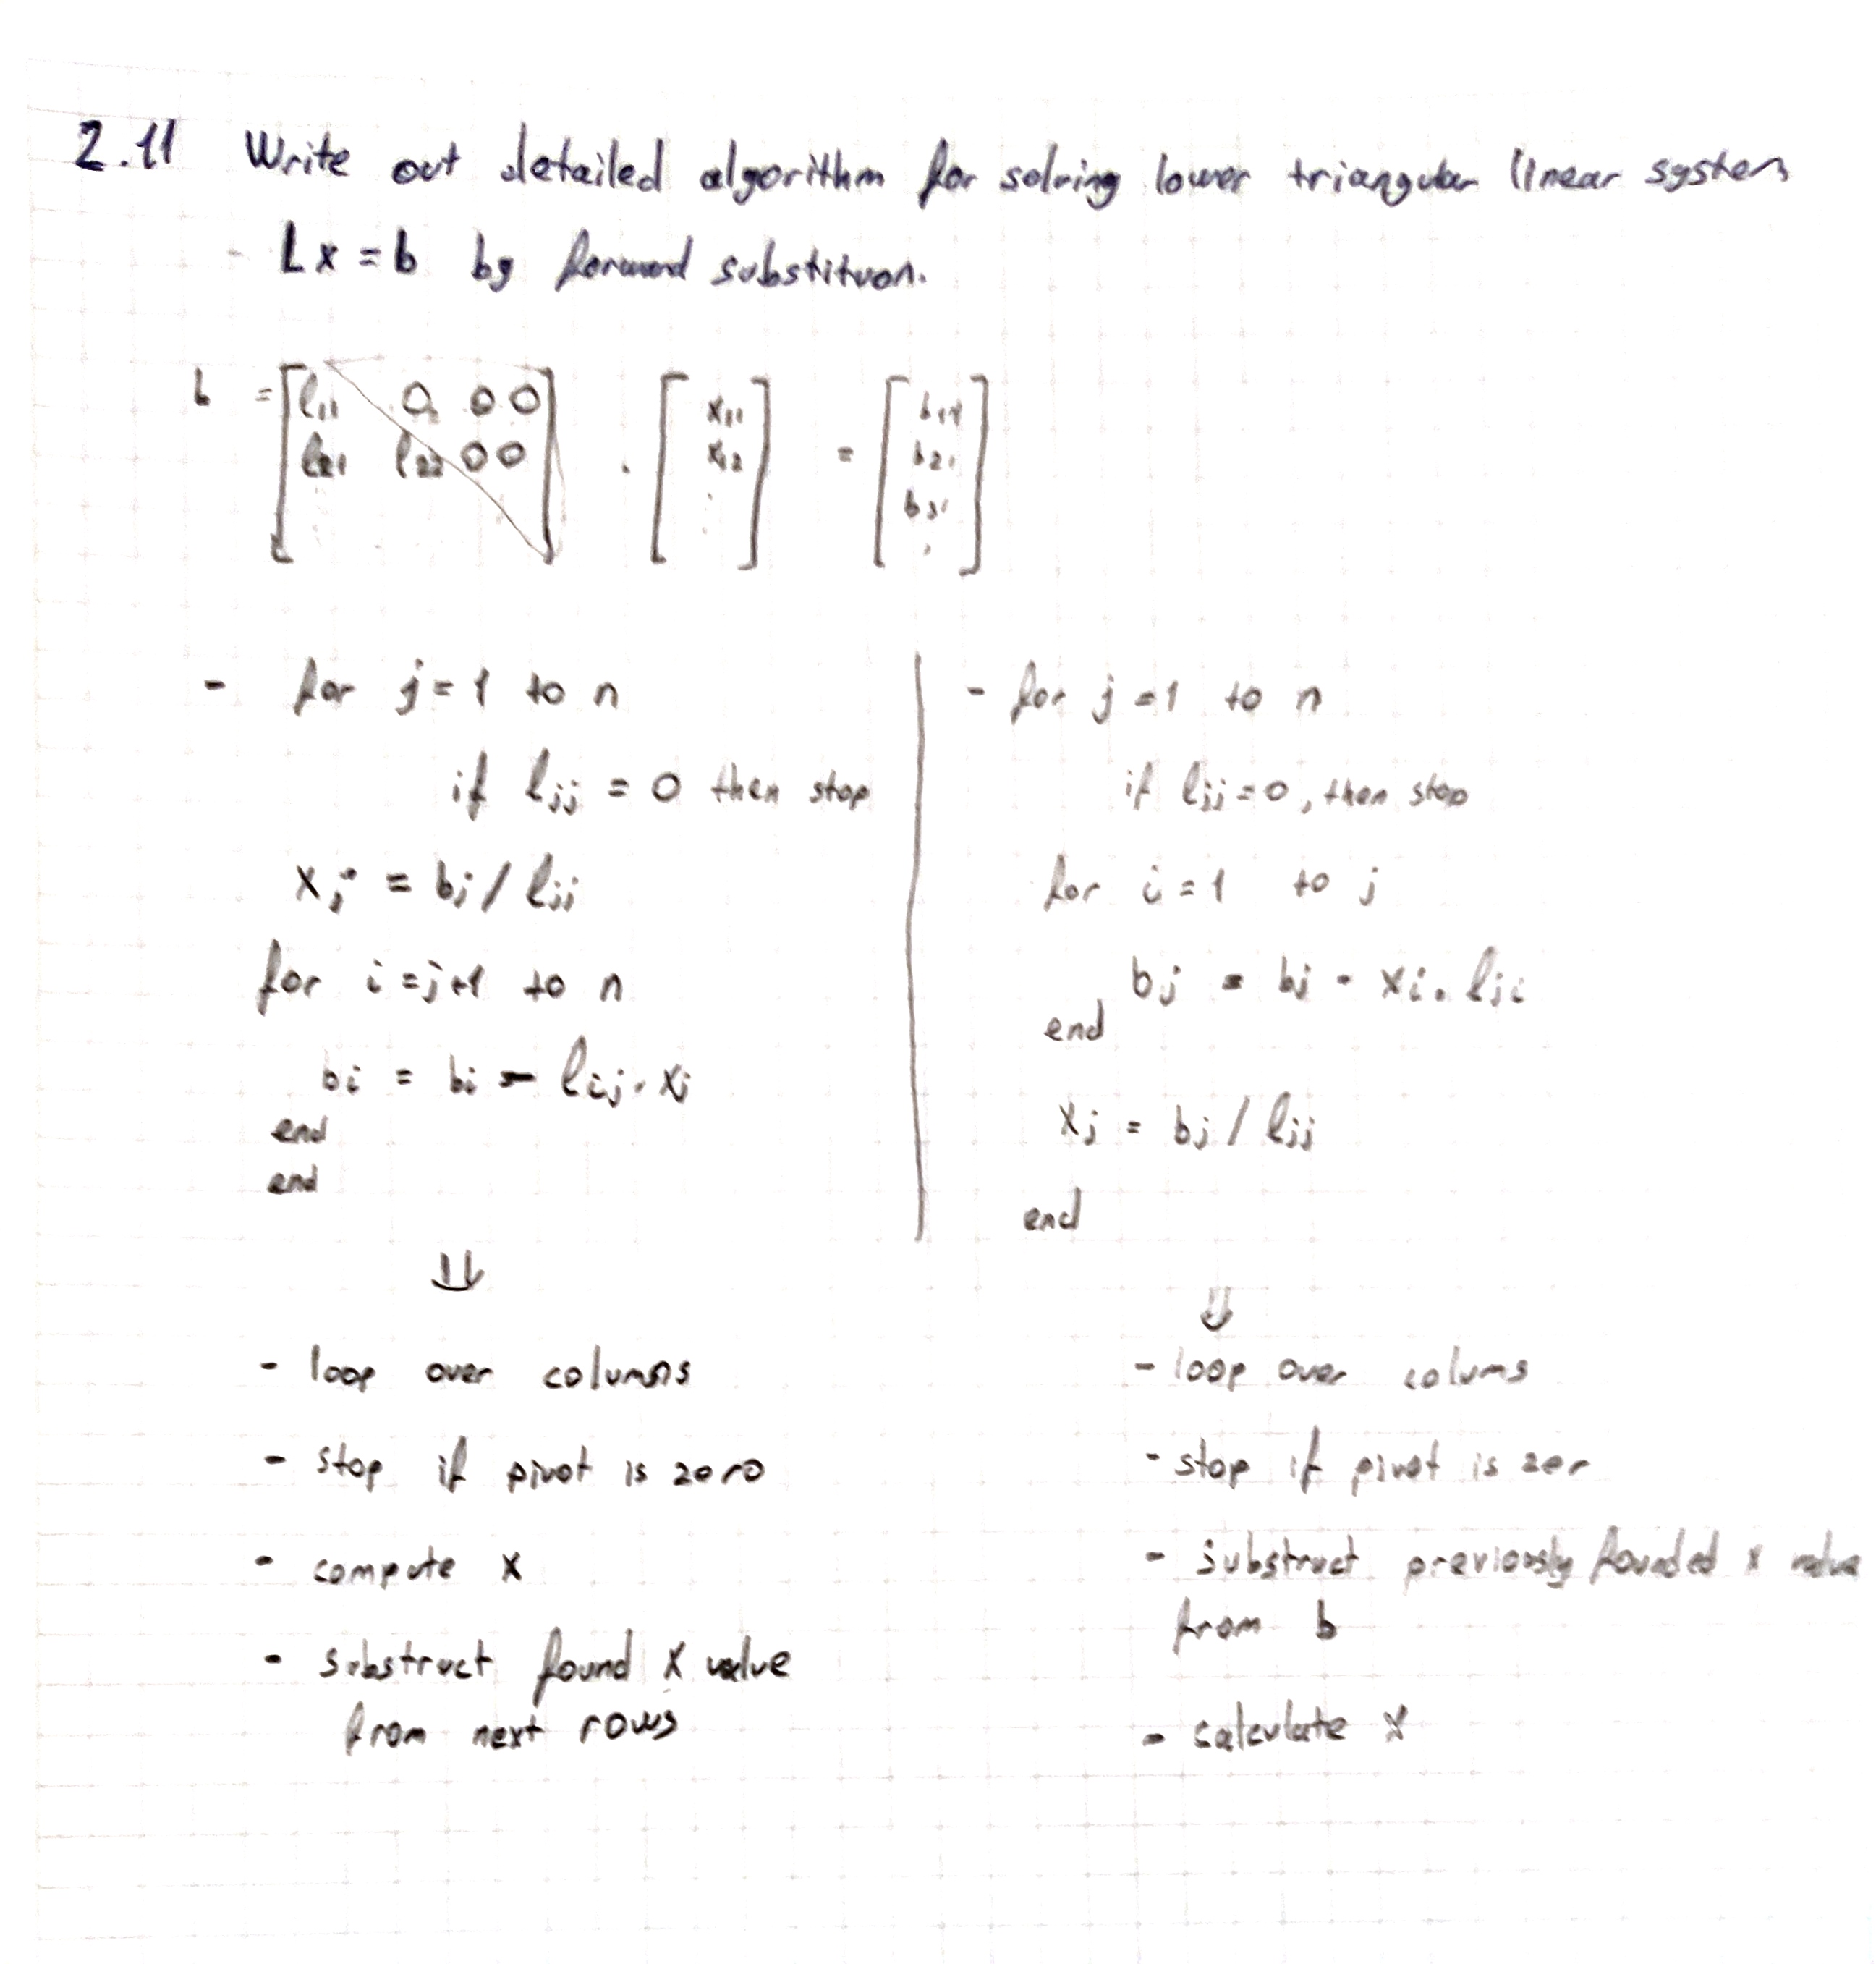 2.11 Write out detailed algorithm for solving lower triangular linear system
Lx = b by forward substituon.
L = [ l11 0 0 0
l21 l22 0 0 ] . [ x11
x12
: ] = [ b11
b21
b31
. ]
- for j = 1 to n
if ljj = 0 then stop
xj = bj / ljj
for i = j+1 to n
bi = bi - lij . xj
end
end
⇓
- loop over columns
- stop if pivot is zero
- compute x
- substruct found x value
from next rows
- for j = 1 to n
if ljj = 0, then stop
for i = 1 to j
bj = bj - xi . lji
end
xj = bj / ljj
end
⇓
- loop over colums
- stop if pivot is zer
- substruct previously founded x value
from b
- calculate x